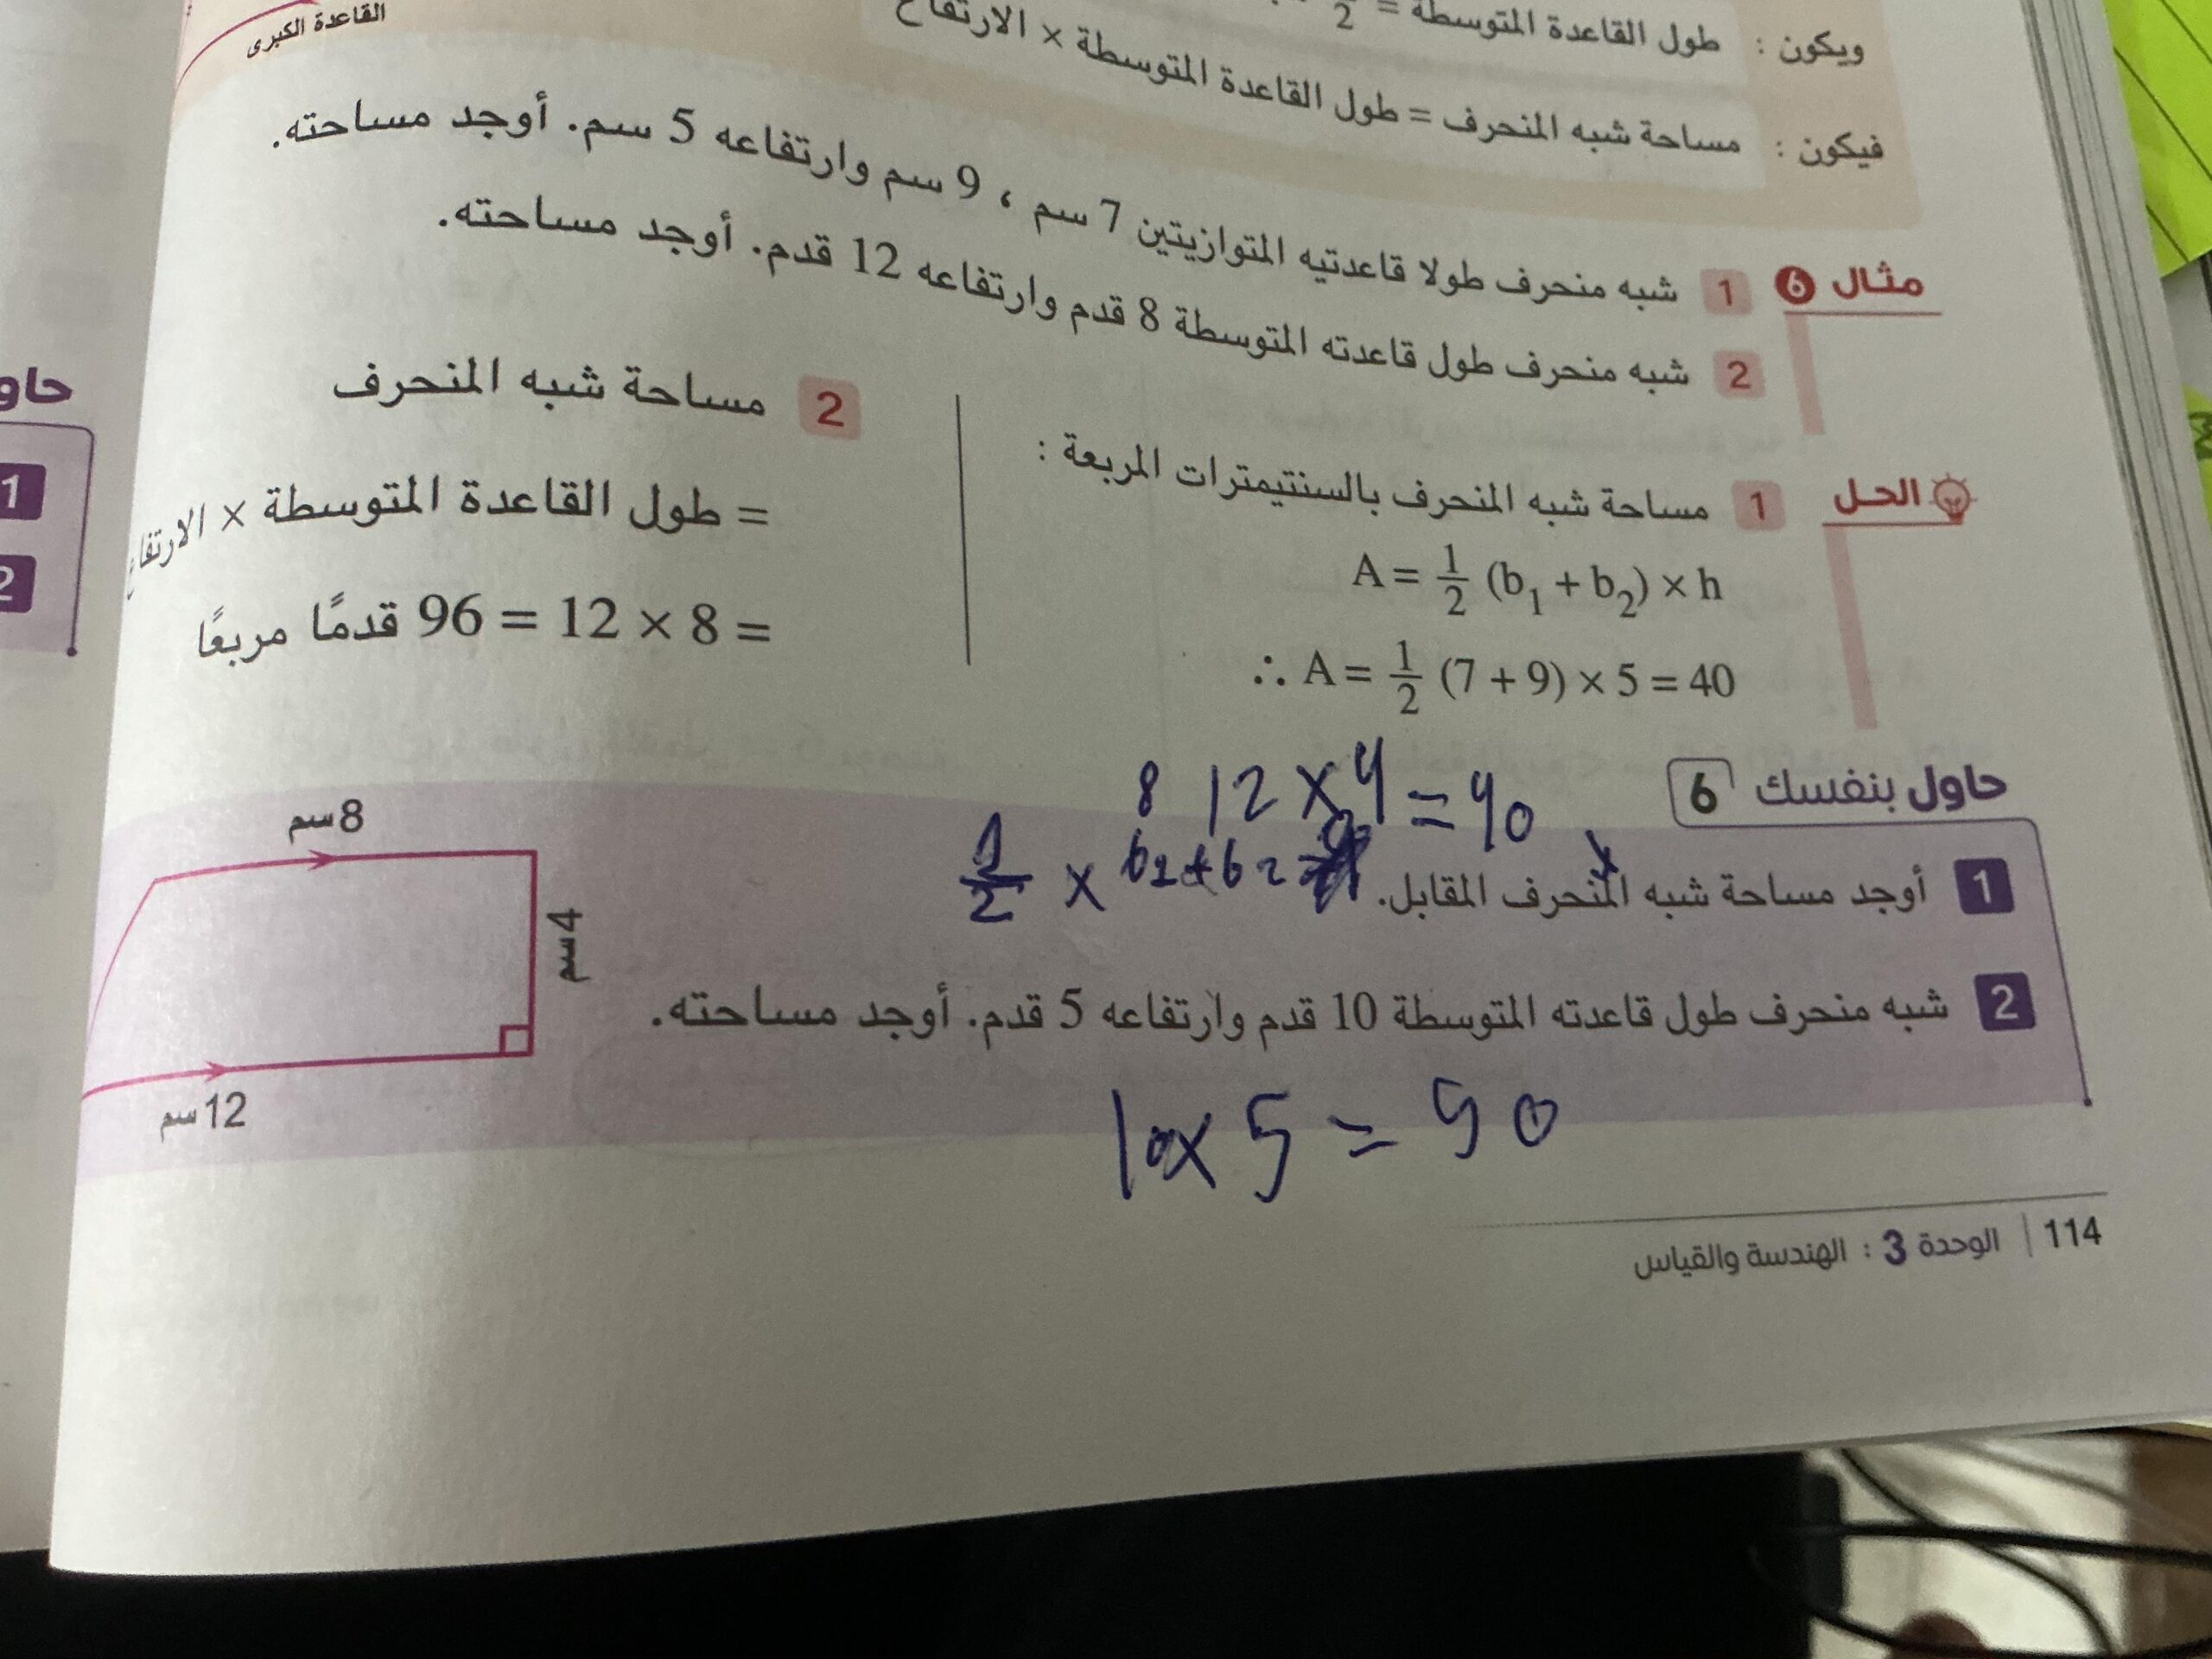 القاعدة الكبرى
ويكون : طول القاعدة المتوسطة = 2
فيكون : مساحة شبه المنحرف = طول القاعدة المتوسطة × الارتفاع
مثال 6
1 شبه منحرف طولا قاعدتيه المتوازيتين 7 سم ، 9 سم وارتفاعه 5 سم. أوجد مساحته.
2 شبه منحرف طول قاعدته المتوسطة 8 قدم وارتفاعه 12 قدم. أوجد مساحته.
الحل
1 مساحة شبه المنحرف بالسنتيمترات المربعة :
A = 1/2 (b₁ + b₂) × h
∴ A = 1/2 (7 + 9) × 5 = 40
2 مساحة شبه المنحرف
= طول القاعدة المتوسطة × الارتفاع
= 8 × 12 = 96 قدمًا مربعًا
حاو
1
2
حاول بنفسك 6
8 12 × 4 = 40
1/2 × b1 + b2
1 أوجد مساحة شبه المنحرف المقابل.
8 سم
4 سم
12 سم
2 شبه منحرف طول قاعدته المتوسطة 10 قدم وارتفاعه 5 قدم. أوجد مساحته.
10 × 5 = 50
114 | الوحدة 3 : الهندسة والقياس